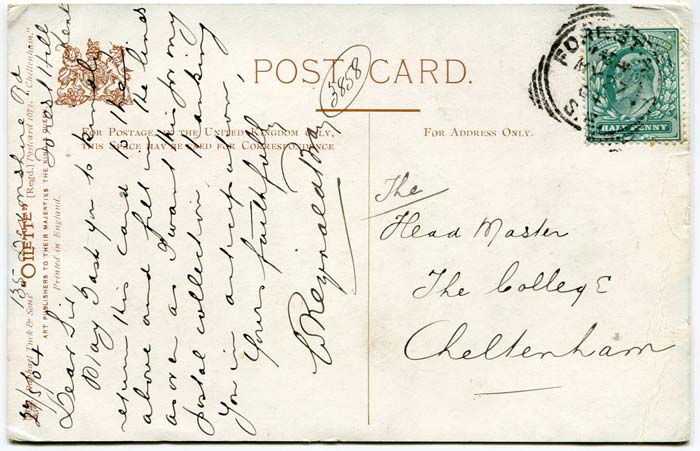 POST CARD.
3858
FOR POSTAGE IN THE UNITED KINGDOM ONLY,
THIS SPACE MAY BE USED FOR CORRESPONDENCE
FOR ADDRESS ONLY.
FOREST
S.E.
HALFPENNY
The
Head Master
The College
Cheltenham
135 Devonshire Rd
Forest Hill
Kent
Dear Sir
May I ask you to kindly
return this card to the
above and fill in the lines
as over as I want it for my
postal collection. Thanking
you in anticipation,
Yours faithfully
W Reginald Bray
Raphael Tuck & Sons' "OILETTE" [Regd.] Postcard 1073, "Cheltenham."
ART PUBLISHERS TO THEIR MAJESTIES THE KING & QUEEN
Printed in England.